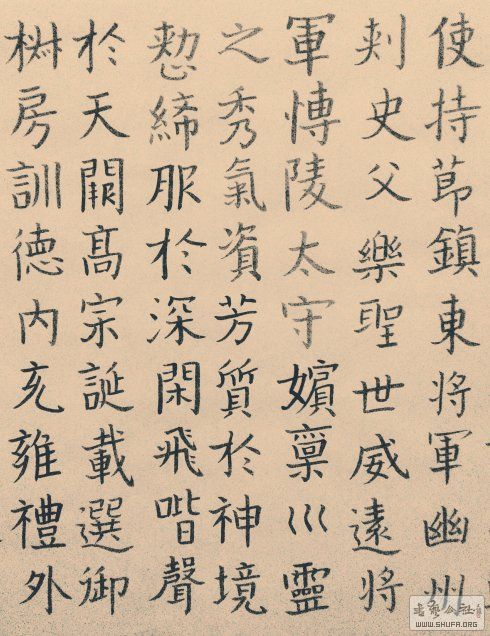 使持莭鎮東将軍幽州
刾史父樂聖世威遠将
軍愽陵太守嬪稟川靈
之秀氣資芳質於神境
締服於深閑飛喈聲
於天闕髙宗誕載選御
椒房訓德内充雍禮外
书艺公社
WWW.SHUFA.ORG